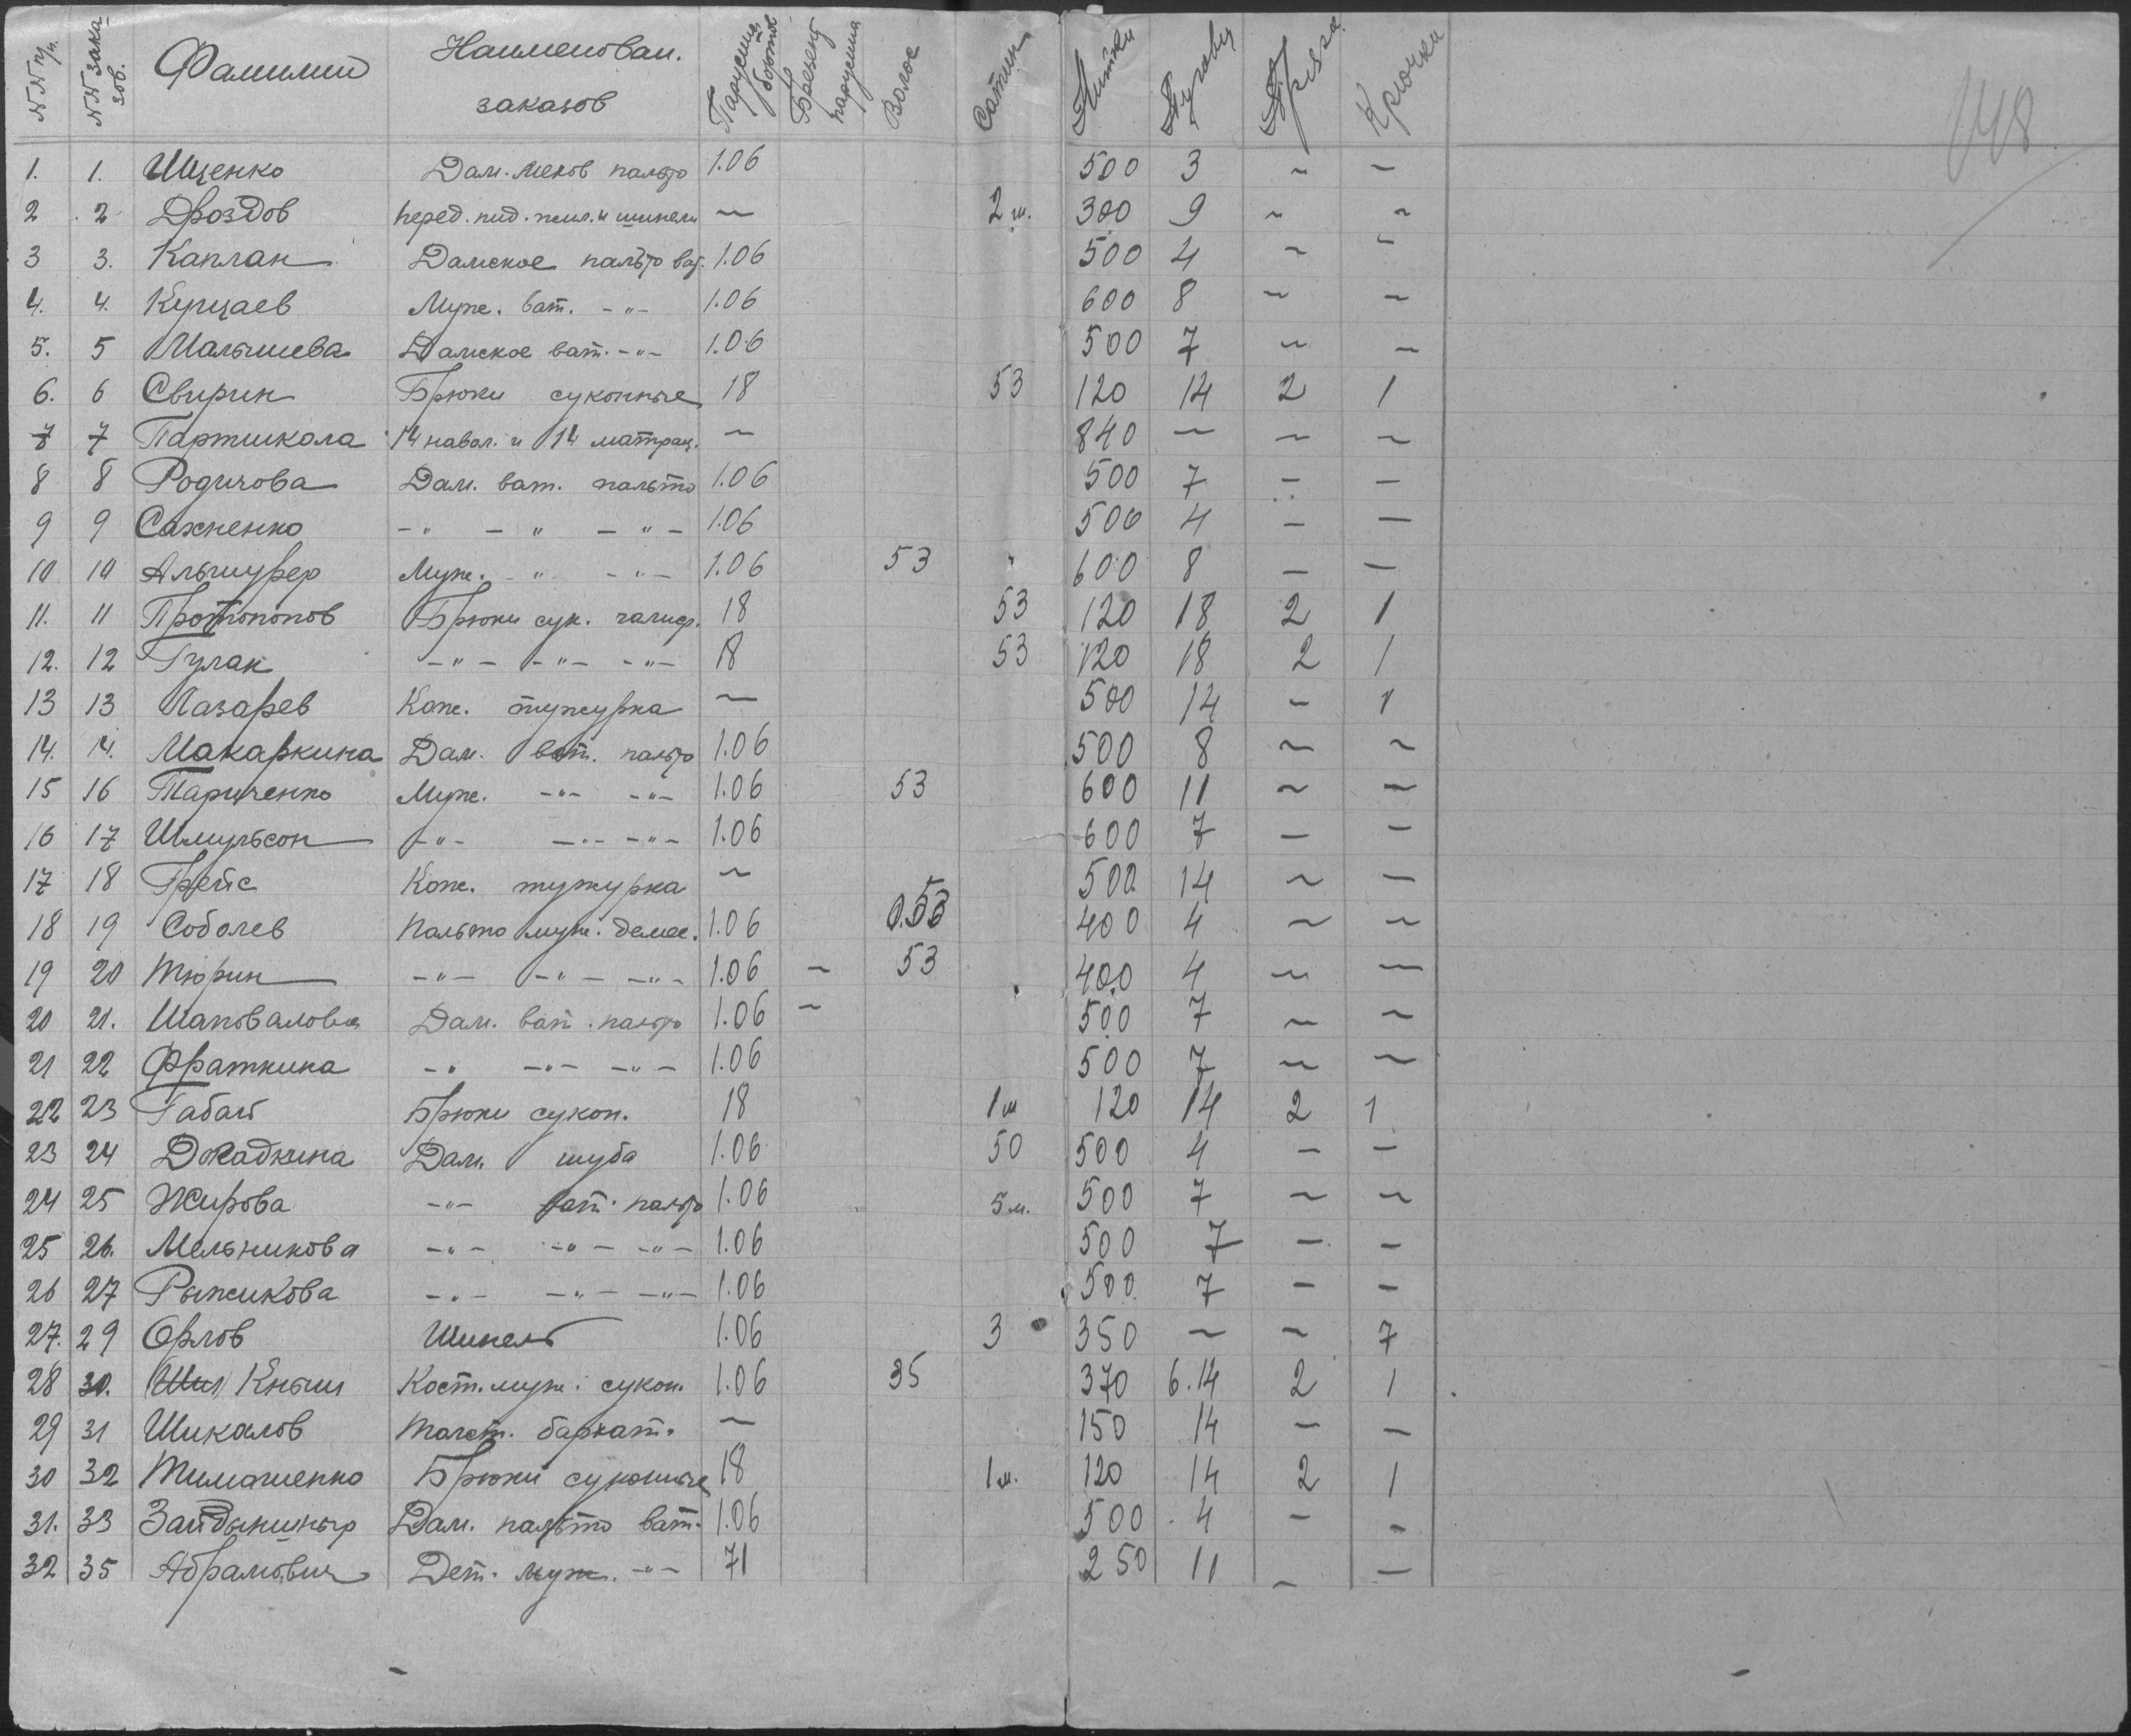 NN п/п. NN зака-зов. Фамилии Наименован. заказов Парусина бортов. парусина Волос Сатин Нитки Пуговиц Пряжа Крючки
148
1. 1. Ищенко Дам. мехов пальто 1.06 500 3 ~ —
2 2 Дроздов перед. пид. жил. и шинели — 2 ш. 300 9 ~ ~
3 3. Каплан Дамское пальто ват. 1.06 500 4 ~ ~
4. 4. Купцаев Муж. ват. -"- 1.06 600 8 ~ ~
5. 5 Малышева Дамское ват. -"- 1.06 500 7 ~ ~
6. 6 Свирин Брюки суконные 18 53 120 14 2 1
7 7 Партшкола 14 навол. и 14 матрац. — 840 — ~ ~
8 8 Родичова Дам. ват. пальто 1.06 500 7 — —
9 9 Сахненко -" -"- -"- 1.06 500 4 — —
10 10 Альтшуфер Муж. -"- -"- 1.06 53 " 600 8 — —
11. 11 Протопопов Брюки сук. галиф. 18 53 120 18 2 1
12. 12 Гулак -"- -"- -"- 18 53 120 18 2 1
13 13 Лазарев Кож. тужурка — 500 14 ~ 1
14. 14. Макаркина Дам. ват. пальто 1.06 500 8 ~ ~
15 16 Тариченко Муж. -"- -"- 1.06 53 600 11 ~ ~
16 17 Шмульсон -"- -"- -"- 1.06 600 7 — —
17 18 Грейс Кож. тужурка ~ 500 14 ~ —
18 19 Соболев Пальто муж. демес. 1.06 0.53 400 4 ~ ~
19 20 Тюрин -"- -"- -"- 1.06 — 53 400 4 ~ —
20 21. Шаповалова Дам. ват. пальто 1.06 — 500 7 ~ ~
21 22 Фраткина -" -"- -"- 1.06 500 7 ~ ~
22 23 Габай Брюки сукон. 18 1 ш 120 14 2 1
23 24 Докадкина Дам. шуба 1.06 50 500 4 — —
24 25 Жирова -"- ват. пальто 1.06 5 м. 500 7 ~ ~
25 26. Мельникова -"- -"- -"- 1.06 500 7 — —
26 27 Рыжикова -"- -"- -"- 1.06 500 7 — —
27. 29 Орлов Шинель 1.06 3 350 ~ ~ 7
28 30. Кныш Кост. муж. сукон. 1.06 35 370 6.14 2 1
29 31 Шикалов Толст. бархат. ~ 150 14 — —
30 32 Тимашенко Брюки суконные 18 1 м. 120 14 2 1
31. 33 Дам. пальто ват. 1.06 500 4 — —
32 35 Абрамович Дет. муж. -"- 71 250 11 — —